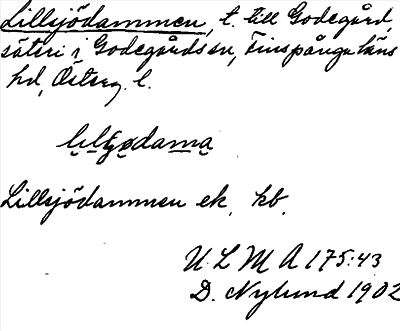 Lillsjödammen, t. till Godegård,
säteri i Godegårds sn, Finspånga läns
hd, Österg. l.
Lillsjödammen ek. kb.
U L M A 175:43
D. Nylund 1902